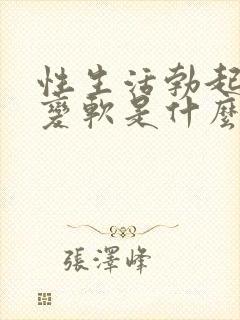 性生活勃起
变軟是什麼
張澤峰